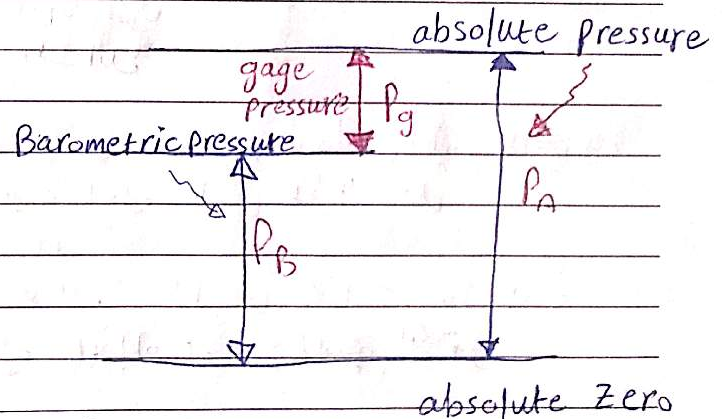 absolute pressure
gage
pressure
Pg
Barometric pressure
PA
PB
absolute Zero